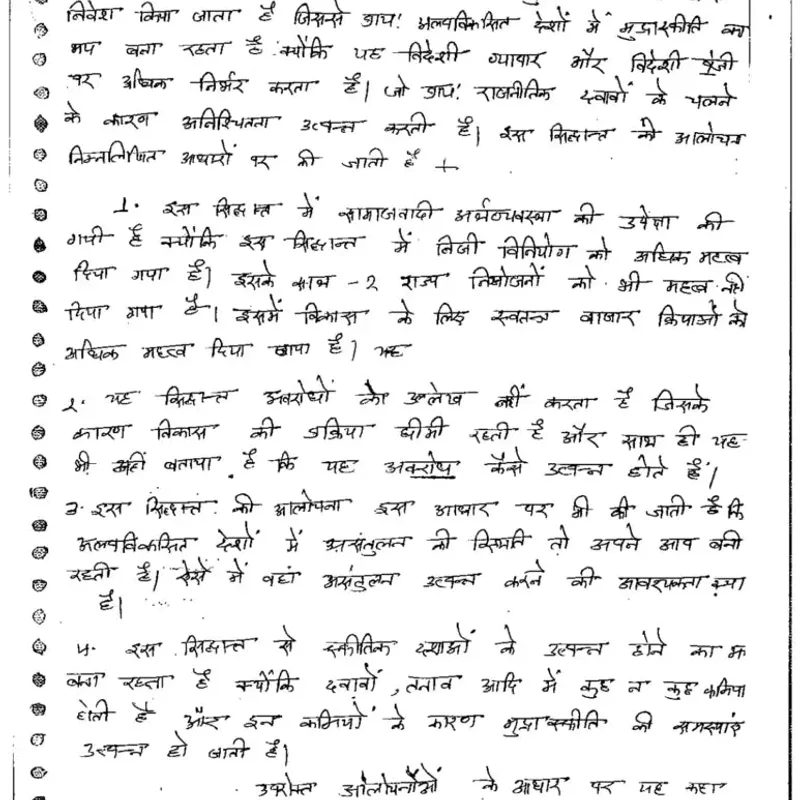 निवेश किया जाता है जिससे प्रायः अल्पविकसित देशों में मुद्रास्फीति का
भय बना रहता है क्योंकि यह विदेशी व्यापार और विदेशी पूंजी
पर अधिक निर्भर करता है। जो प्रायः राजनीतिक दबावों के चलने
के कारण अनिश्चितता उत्पन्न करती है। इस सिद्धान्त की आलोचना
निम्नलिखित आधारों पर की जाती है -
1. इस सिद्धान्त में सामाजवादी अर्थव्यवस्था की उपेक्षा की
गयी है क्योंकि इस सिद्धान्त में निजी विनियोग को अधिक महत्व
दिया गया है। इसके साथ -2 राज्य नियोजनों को भी महत्व नहीं
दिया गया है। इसमें विकास के लिए स्वतन्त्र बाजार क्रियाओं को
अधिक महत्व दिया गया है। यह
2. यह सिद्धान्त अवरोधों का उल्लेख नहीं करता है जिसके
कारण विकास की प्रक्रिया धीमी रहती है और साथ ही यह
भी नहीं बताया है कि यह अवरोध कैसे उत्पन्न होते हैं।
3. इस सिद्धान्त की आलोचना इस आधार पर भी की जाती है कि
अल्पविकसित देशों में असंतुलन की स्थिति तो अपने आप बनी
रहती है। ऐसे में वहां असंतुलन उत्पन्न करने की आवश्यकता क्या
है।
4. इस सिद्धान्त से स्फीतिक दशाओं के उत्पन्न होने का भ
बना रहता है क्योंकि दबावों, तनाव आदि में कुछ न कुछ कमिया
होती है और इन कमियों के कारण मुद्रास्फीति की समस्याएं
उत्पन्न हो जाती है।
उपरोक्त आलोचनाओं के आधार पर यह कहा